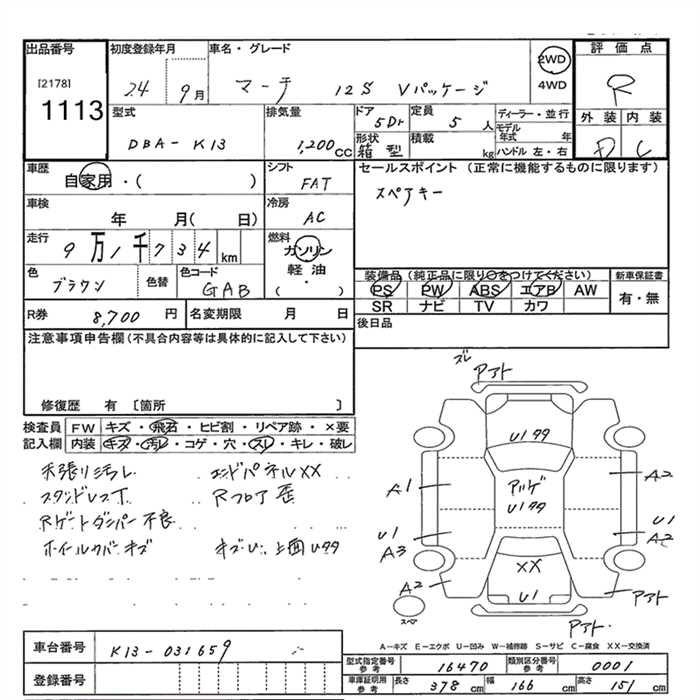 出品番号
[2178]
1113
初度登録年月
24 9月
車名・グレード
マーチ 12S Vパッケージ
2WD
4WD
評価点
R
外装 内装
D C
型式
DBA-K13
排気量
1,200cc
ドア
5Dr
形状
箱型
定員
5人
積載
kg
ディーラー・並行
モデル年式 年
ハンドル 左・右
車歴
自家用・( )
シフト
FAT
セールスポイント (正常に機能するものに限ります)
スペアキー
車検
年 月( 日)
冷房
AC
走行
9万1千734km
燃料
ガソリン
軽油
( ・ )
色
ブラウン
色替
色コード
GAB
装備品(純正品に限り○をつけてください)
PS PW ABS エアB AW
SR ナビ TV カワ
新車保証書
有・無
R券
8,700円
名変期限
月 日
後日品
注意事項申告欄(不具合内容等は具体的に記入して下さい)
修復歴 有 〔箇所 〕
検査員記入欄
FW キズ・飛石・ヒビ割・リペア跡・×要
内装 キズ・汚レ・コゲ・穴・スレ・キレ・破レ
天張リ汚レ
エンドパネルXX
Rフロア歪
Rゲートダンパー不良
ホイルカバーキズ
ズレ
アアト
U1 タタ
アルゲ
U1タタ
A1
A2
U1
A3
U1
A2
XX
U1
A2
アアト
アアト
スペア
A-キズ E-エクボ U-凹み W-補修跡 S-サビ C-腐食 XX-交換済
車台番号
K13-031659
登録番号
型式指定番号 参考
16470
類別区分番号 参考
0001
車庫証明用 参考
長さ 378cm
幅 166cm
高さ 151cm